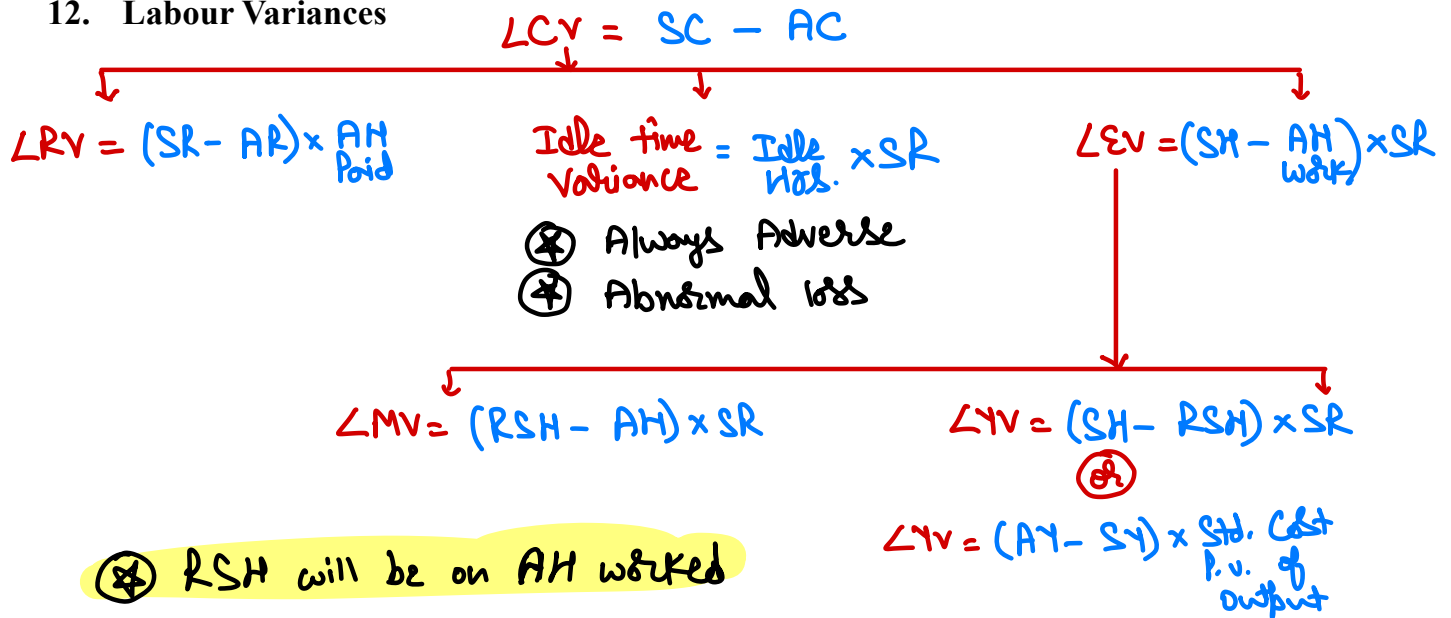 12. Labour Variances
LCV = SC - AC
LRV = (SR - AR) × AH Paid
Idle time Variance = Idle Hrs. × SR
LEV = (SH - AH work) × SR
Always Adverse
Abnormal loss
LMV = (RSH - AH) × SR
LYV = (SH - RSH) × SR
or
LYV = (AY - SY) × Std. Cost P.U. of Output
RSH will be on AH worked